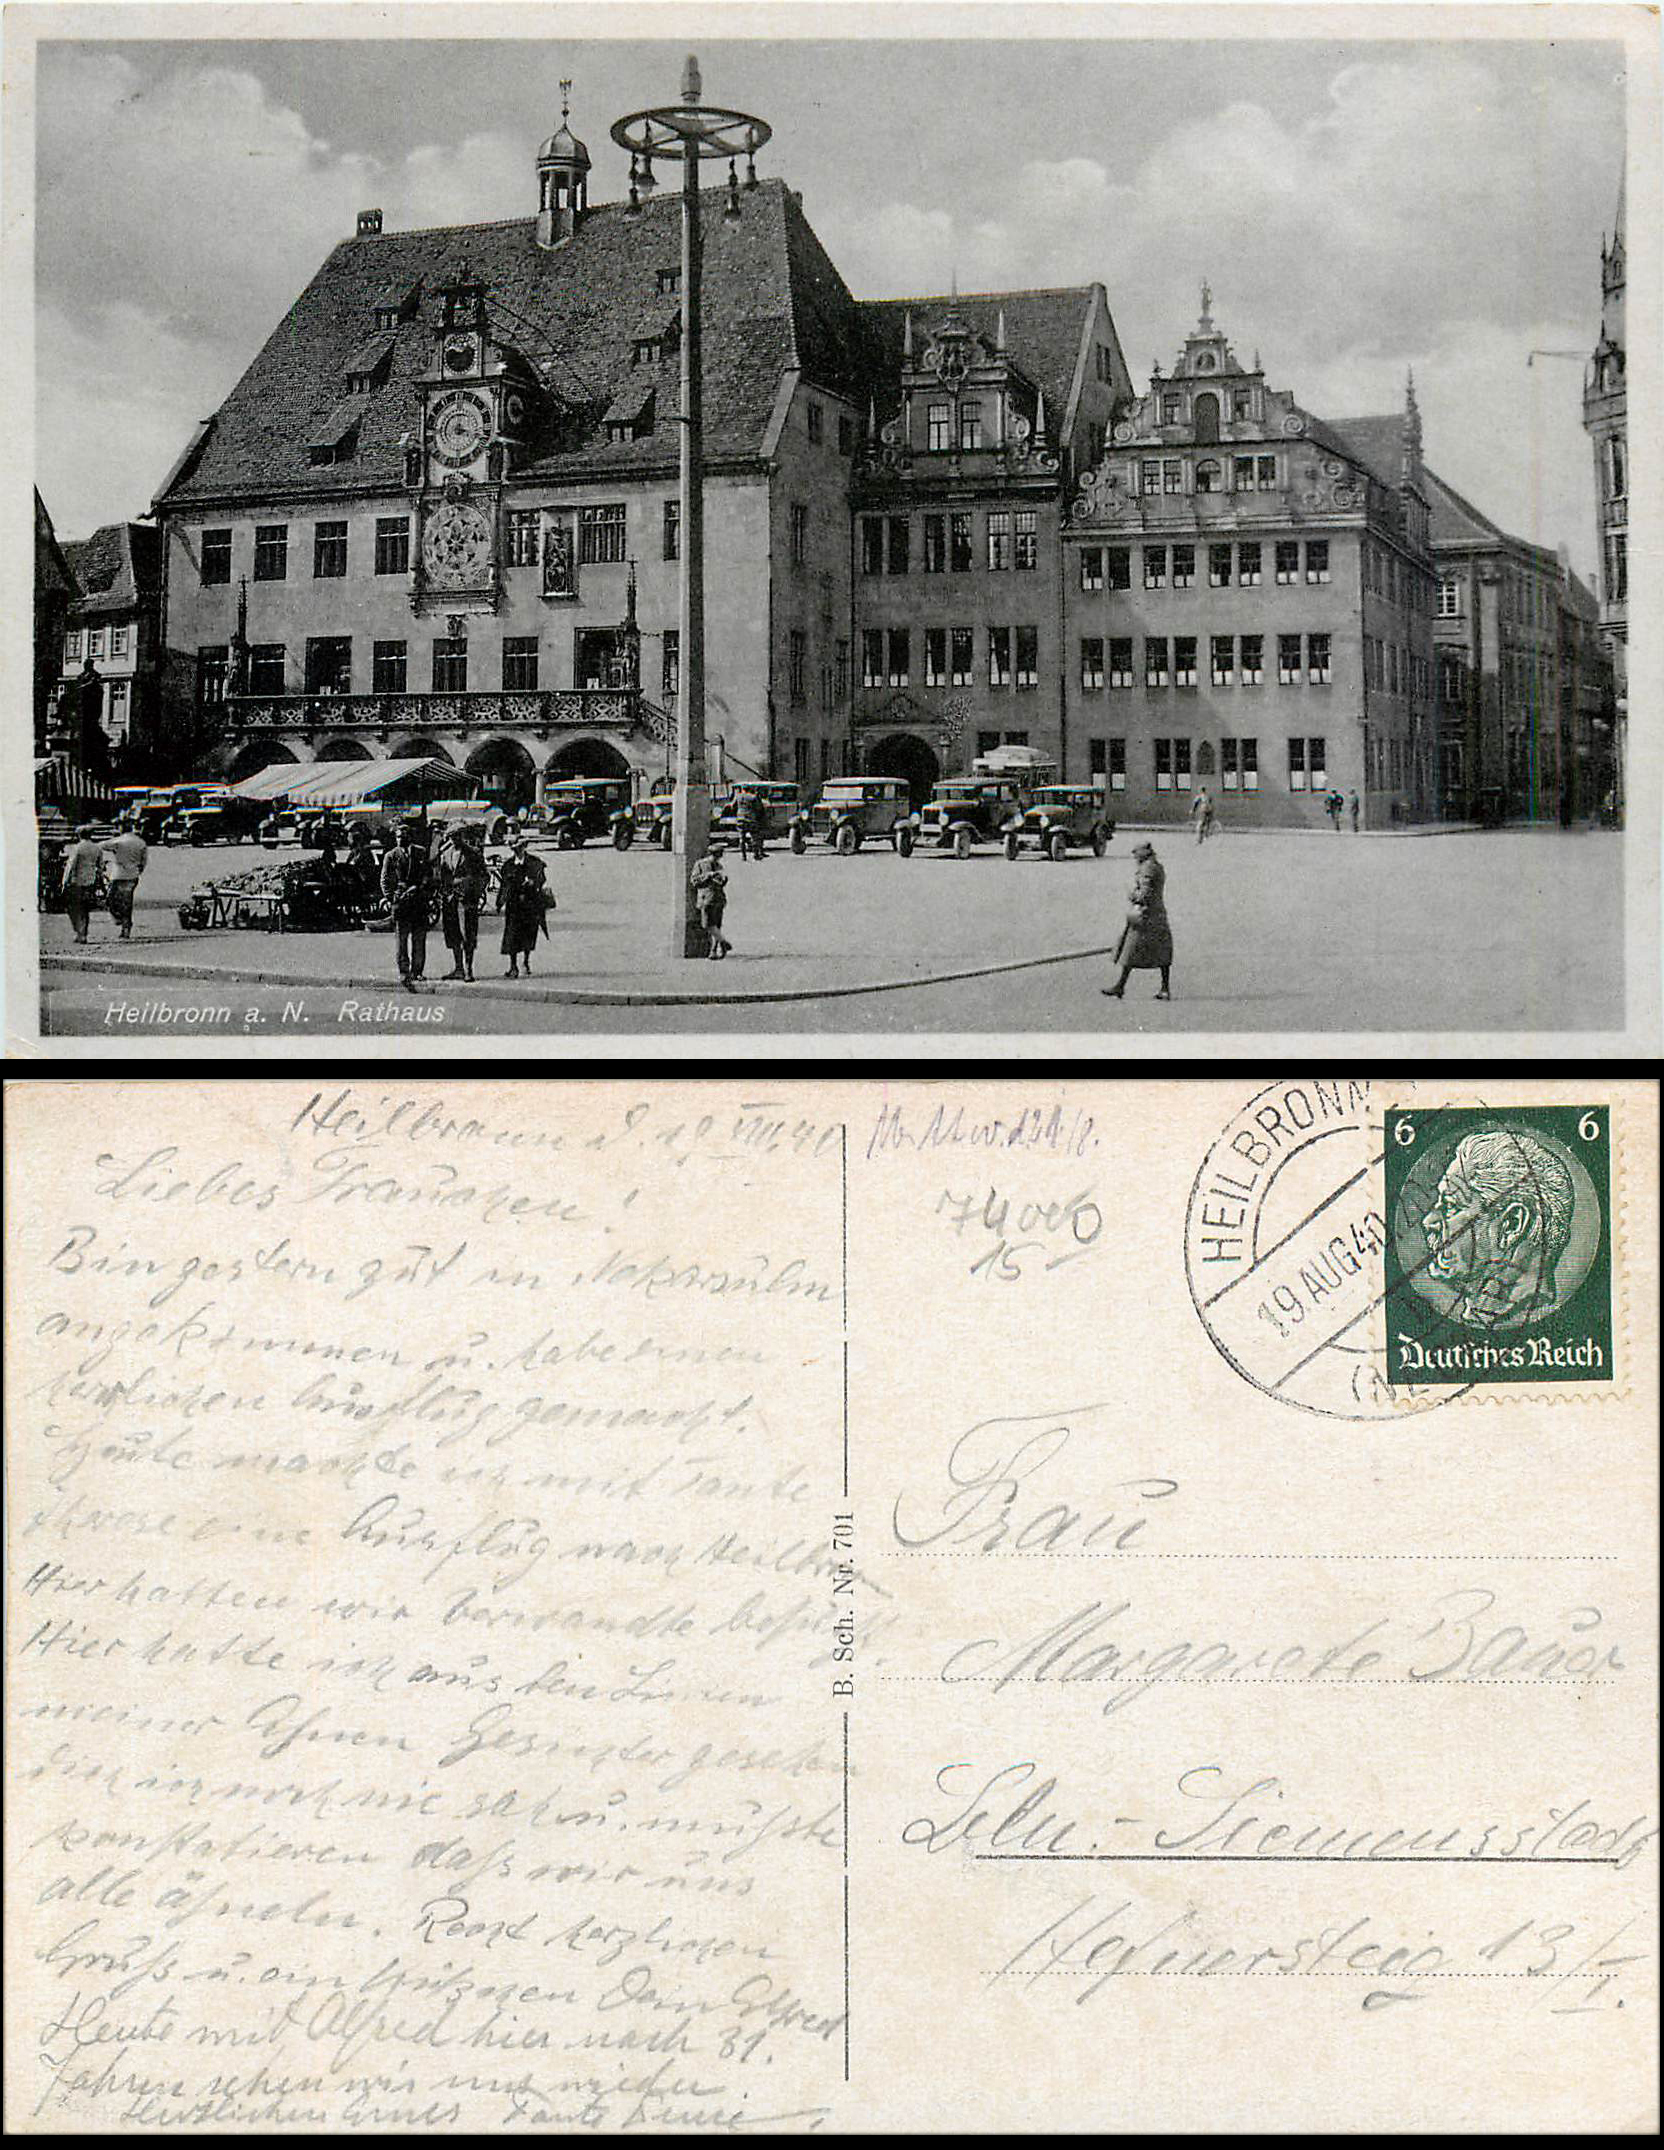 Heilbronn a. N. Rathaus
Heilbronn d. 19 VIII. 40
Liebes Frauchen!
Bin gestern gut in Nekarsulm
angekommen u. habe einen
herrlichen Ausflug gemacht.
Heute machte ich mit Tante
eine Ausflug nach Heilbronn
Hier hatten wir Verwandte besucht.
Hier hatte ich aus den Linien
meiner Ahnen Gesichter gesehen
die ich noch nie sah u. mußte
konstatieren daß wir uns
alle ähneln. Recht herzlichen
Gruß u. ein Küßchen Dein Alfred
Heute mit Alfred hier nach 31.
Jahren sehen wir uns wieder.
Herzlichen Gruss Tante
B. Sch. Nr. 701
74006
15-
HEILBRONN
19 AUG 40
6 6
Deutsches Reich
Frau
Margarete Bauer
Bln.- Siemensstadt
Hefnersteig 13/I.